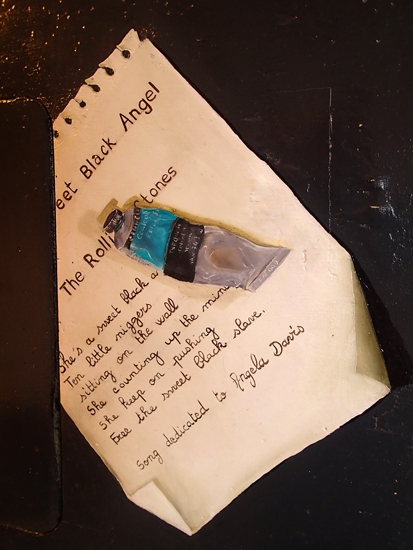 eet Black Angel
The Rolli Stones
She's a sweet black a
Ten little niggers
sitting on the wall
She counting up the minu
She keep on pushing
Free the sweet black slave.
Song dedicated to Angela Davis